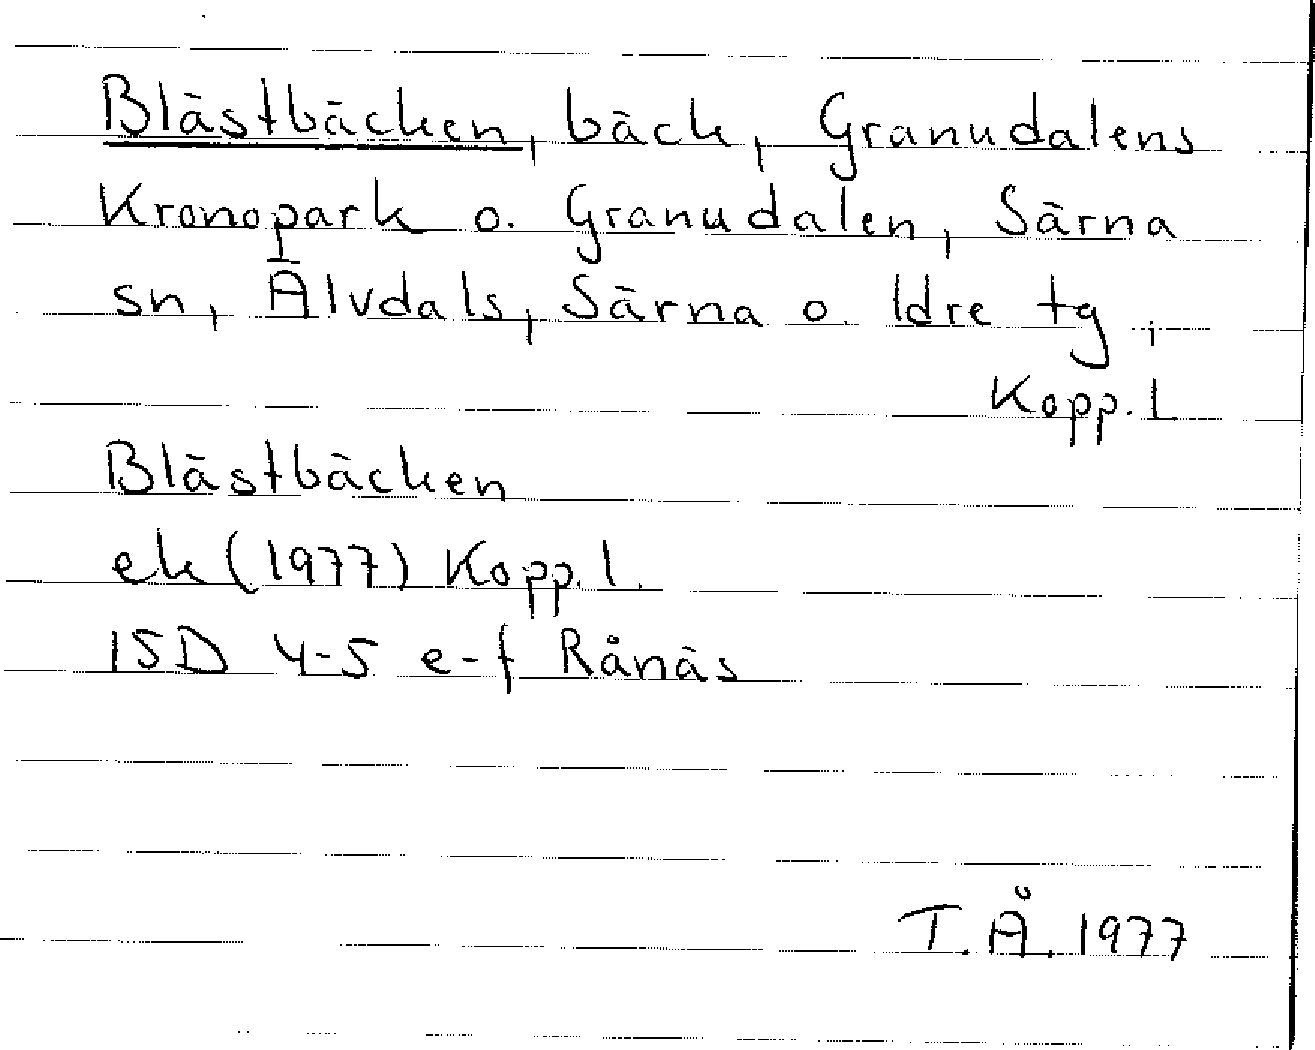 Blästbäcken, bäck, Granudalens
Kronopark o. Granudalen, Särna
sn, Älvdals, Särna o. Idre tg,
Kopp. l
Blästbäcken
ek (1977) Kopp. l.
15D 4-5 e-f Rånäs
T. Å. 1977